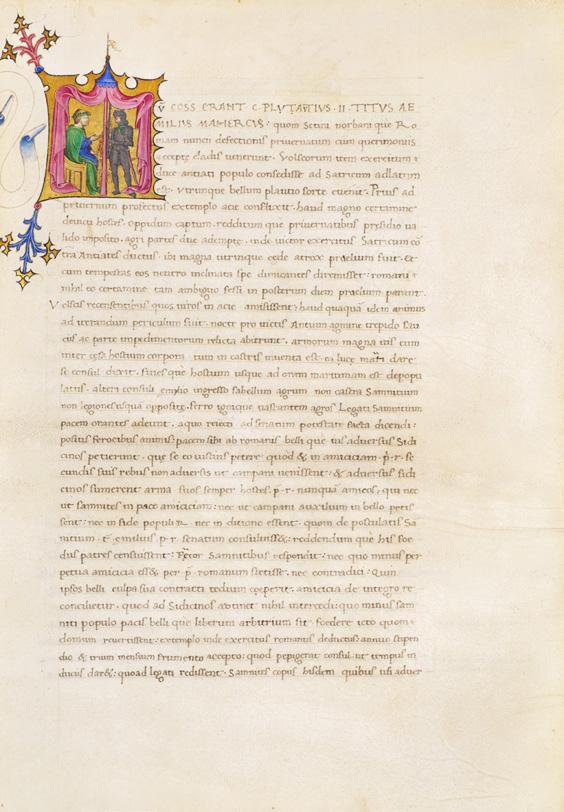 Ū COSS ERANT · C · PLVTAVTIVS · II · TITVS AE
MILIVS MAMERCVS · quom Setini norbani que Ro
mam nuncii defectionis privernatum cum querimoniis
accepte cladis venerunt. Volscorum item exercitum
duce antiati populo consedisse ad Satricum adlatum
est. Utrunque bellum plautio sorte evenit. Prius ad
privernum profectus extemplo acie conflixit. haud magno certamine
devicti hostes. oppidum captum. redditum que privernatibus presidio va
lido imposito. agri partes due adempte. inde victor exercitus Satricum cō
tra Antiates ductus. ibi magna utrinque cede atrox praelium fuit. Et
cum tempestas eos neutro inclinata spe dimicantes diremisset. romani
nihil eo certamine tam ambiguo fessi in posterum diem praelium parant.
Volscis recensentibus quos viros in acie amisissent haud quaquam idem animus
ad iterandum periculum fuit. nocte pro victis Antium agmine trepido sau
ciis ac parte impedimentorum relicta abierunt. armorum magna vis cum
inter cęsa hostium corpora tum in castris inventa est. ea lucę matri dare
se consul dixit. fines que hostium usque ad oram maritimam est depopu
latus. alteri consuli emilio ingresso sabellum agrum non castra Samnitium
non legiones usquam opposite. ferro igni que vastantem agros Legati Samnitium
pacem orantes adeunt. a quo reiecti ad senatum potestate facta dicendi:
positis ferocibus animis: pacem sibi ab romanis belli que ius adversus Sidi
cinos petierunt. que se eo iustius petere quod & in amiciciam .p.r. se
cundis suis rebus non adversis ut campani venissent: & adversus sidi
cinos sumerent arma suos semper hostes. p.r. nunquā amicos. qui nec
ut samnites in pace amiciciam: nec ut campani auxilium in bello petis
sent: nec in fide populi R. nec in ditione essent. quom de postulatis Sa
nitium .t. emilius p.r. senatum consuluiss&: reddendum que his foe
dus patres censuissent: Pretor Samnitibus respondit: nec quo minus per
petua amicicia ess& per p. romanum stetisse. nec contradici: Quin
ipsos belli culpa sua contracti tedium coeperit. amicicia de integro re
concilietur. quod ad Sidicinos attinet nihil intercedi: quo minus sam
niti populo pacis belli que liberum arbitrium sit. foedere icto quom
domum revertissent: extemplo inde exercitus romanus deductus: annuo stipen
dio & trium mensium frumento accepto: quod pepigerat consul ut tempus in
duciis dar&: quoad legati redissent. Samnites copiis hisdem quibus usi adver